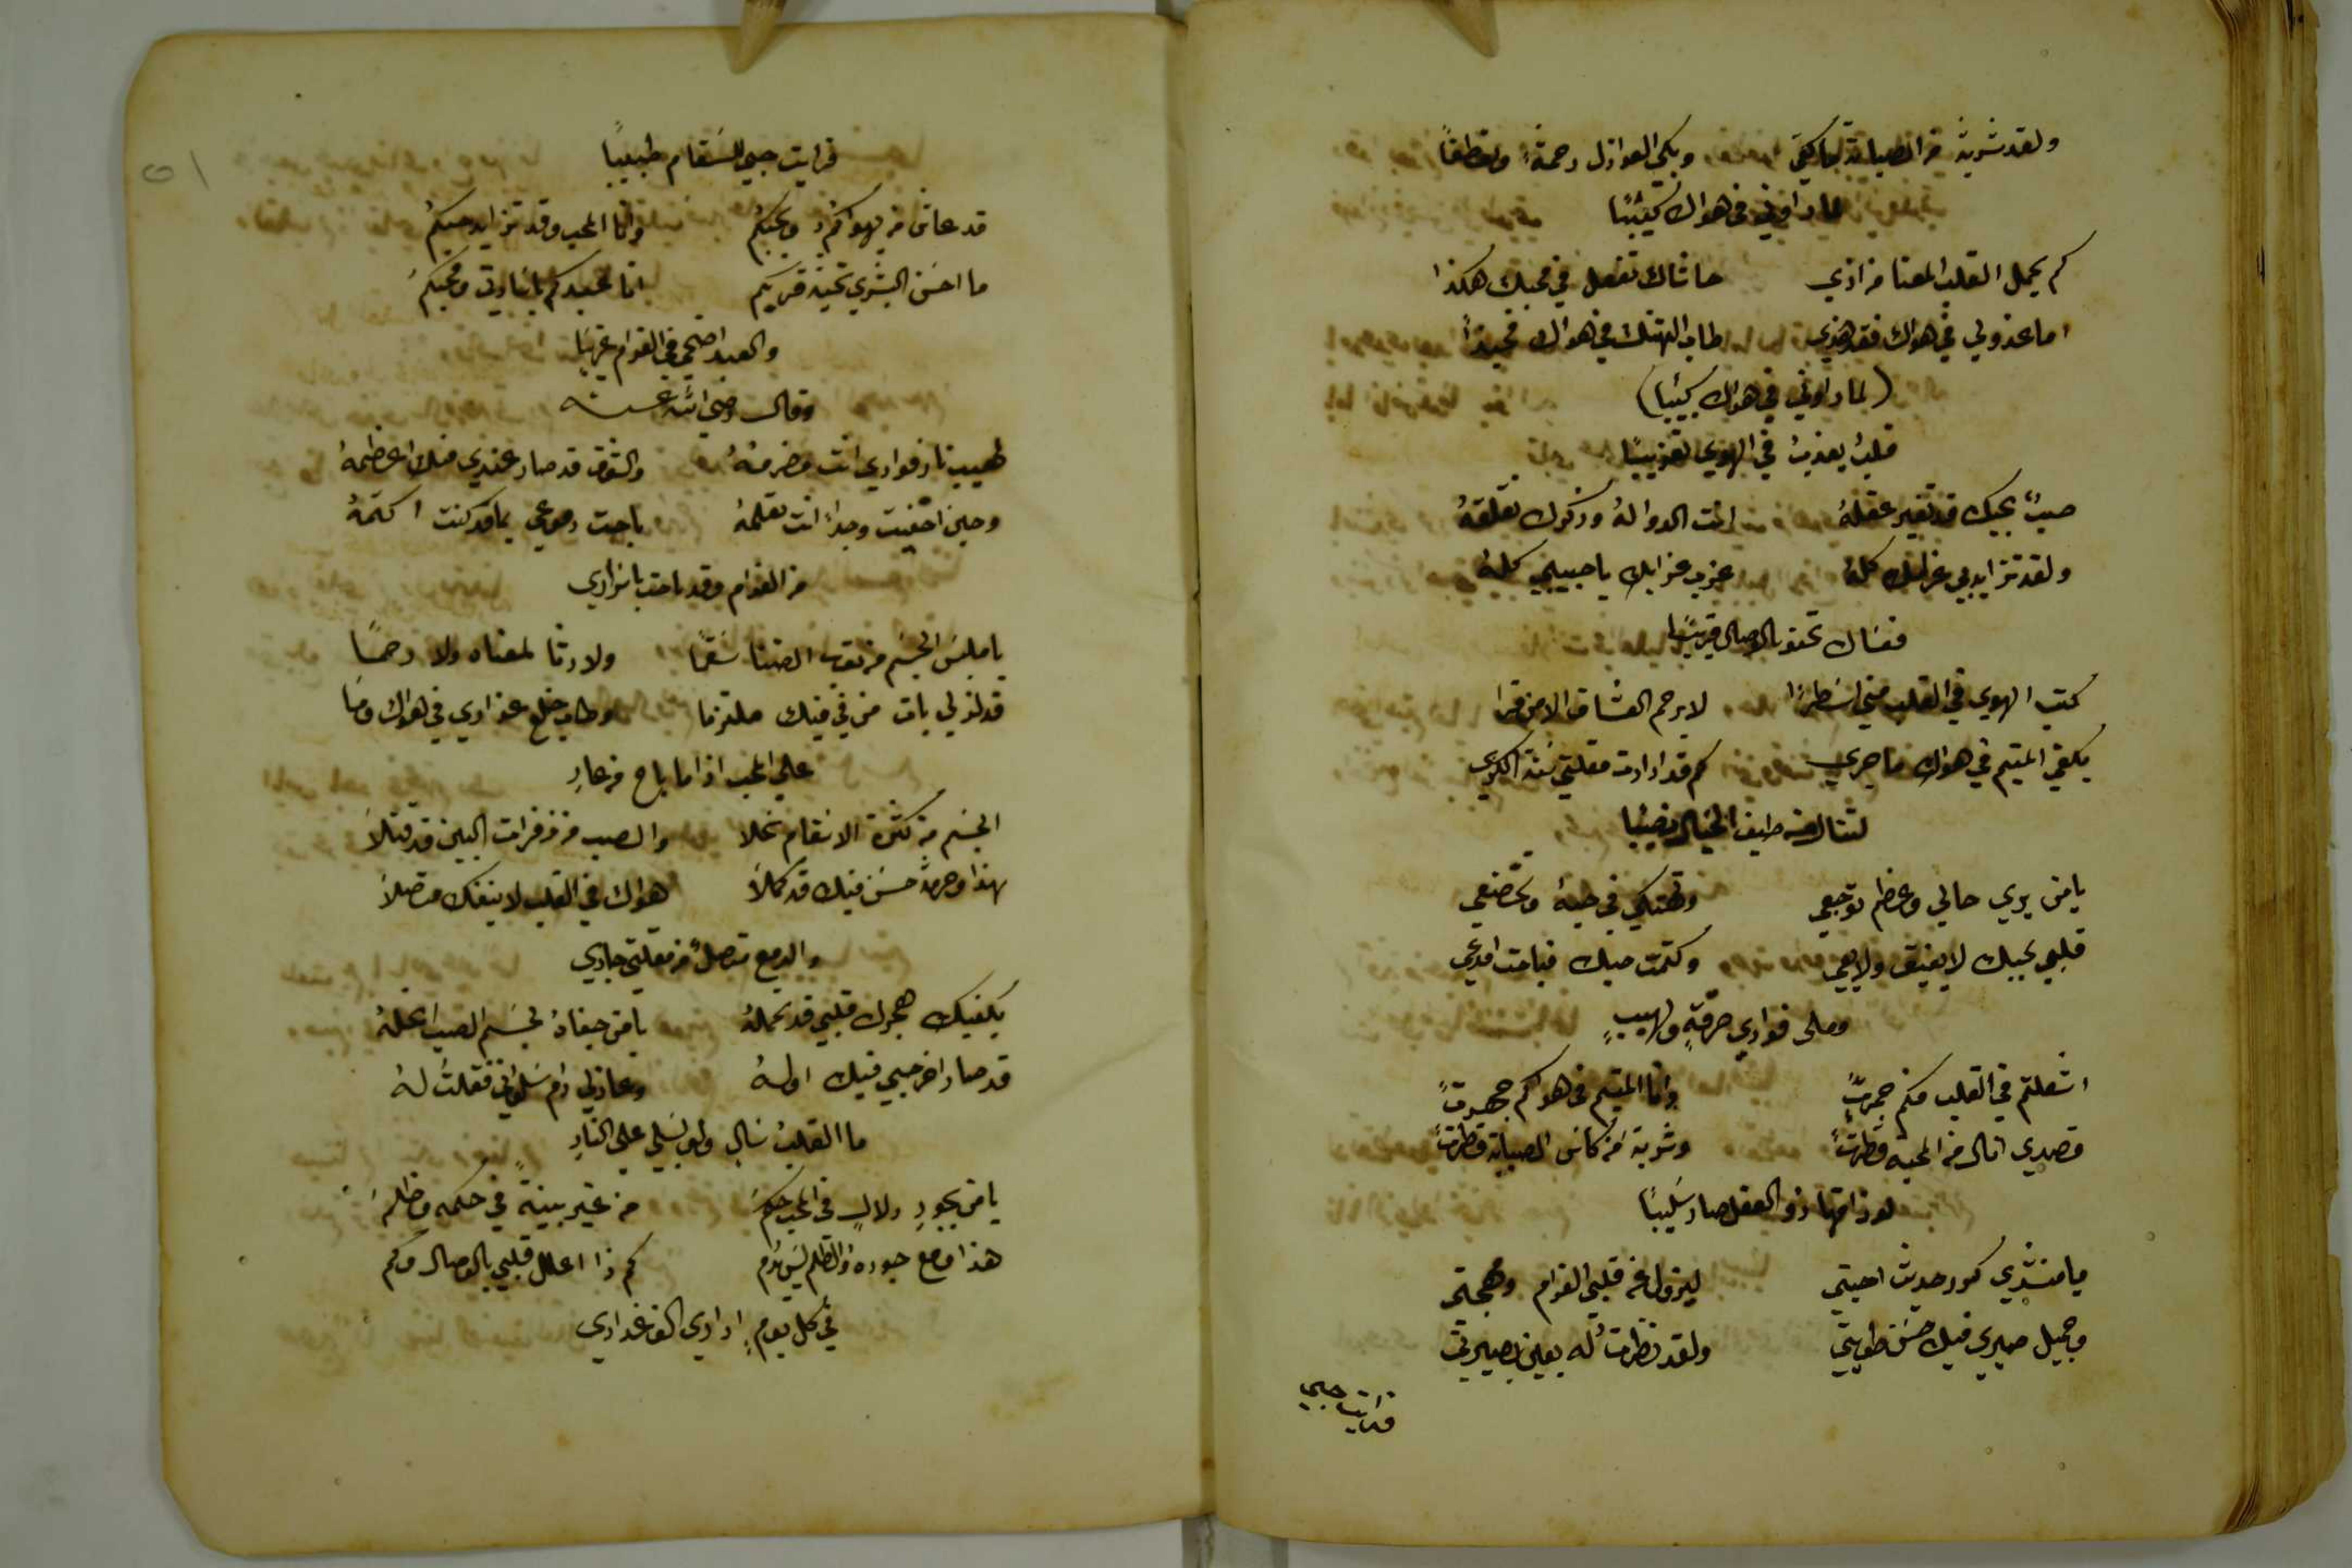 ولقد شربت من الصبابة ما كفى وبكى العواذل رحمة وتعطفا
لما راوني في هواك كئيبا
كم يحمل القلب المعنا من اذي حاشاك تفعل في محبك هكذا
اما عذولي في هواك فقد هذي طاب التهتك في هواك فحبذا
(لما راوني في هواك كئيبا)
قلب يعذب في الهوي تعذيبا
صب بحبك قد تغير عقله انت الدوا له وذكرك
ولقد تزايد بي كله عذب عذابك يا حبيبي كله
فعساك تحنو بالوصال قريبا
كتب الهوي في القلب مني اسطرا لا يرحم العشاق الا من قرا
يكفي المتيم في هواك ما جري كم قد ارادت مقلتي سنة الكري
لتنال من طيف الخيال نصيبا
يا من يري حالي وعظم توجعي وتهتكي في حبه وتخضعي
قلبي بحبك لا يفيق ولا يعي وكتمت حبك فباحت ادمعي
وملى فوادي حرقة ولهيب
اشعلتم في القلب منكم جمرة وانا المتيم في هواكم جهرة
قصدي انال من المحبه قطرة وشربة من كاس الصبابة قطرة
لو ذاقها ذو العقل صار سليبا
يا منشدي كرر حديث احبتي ليزول عن قلبي الغرام ومهجتي
وجميل صبري فيك حسن طويتي ولقد نظرت له بعين بصيرتي
فرايت حبي
فرايت حبي للسقام طبيبا
قد عاش من يهواكم ويحبكم وانا المحب وقد تزايد حبكم
ما احسن البشري بقربكم انا عبدكم يا سادتي ومحبكم
والعبد اضحي في الغرام غريبا
وقال رضي الله عنه
لهيب نار فوادي انت مضرمه والشوق قد صار عندي منك اعظمه
وحين اخفيت وجدا انت تعلمه باحت دموعي بما قد كنت اكتمه
من الغرام وقد باحت باسراري
يا ملبس الجسم من ثوب الضنا سقما ولا رثا لمعناه ولا رحما
قد لذ لي بات مني فيك ملتزما وطاب خلع عذاري في هواك وما
علي المحب اذا ما باح من عار
الجسم من كثرة الاسقام نحلا والصب من زفرات البين قد قتلا
بهذا وحرمة حسن فيك قد كملا هواك في القلب لا ينفك متصلا
والدمع متصل من مقلتي جاري
يكفيك هجرك قلبي قد تحمله يا من جفاه لجسم الصب انحله
قد صار اخر حبي فيك اوله وعاذلي رام سلواني فقلت له
ما القلب سال ولو يسلي علي النار
يا من بجور دلال في المحب حكم من غير بينة في حكمه وظلم
هذا ومع جوره والظلم ليس كم ذا اعلل قلبي بالوصال وكم
في كل يوم اداري الف غداري